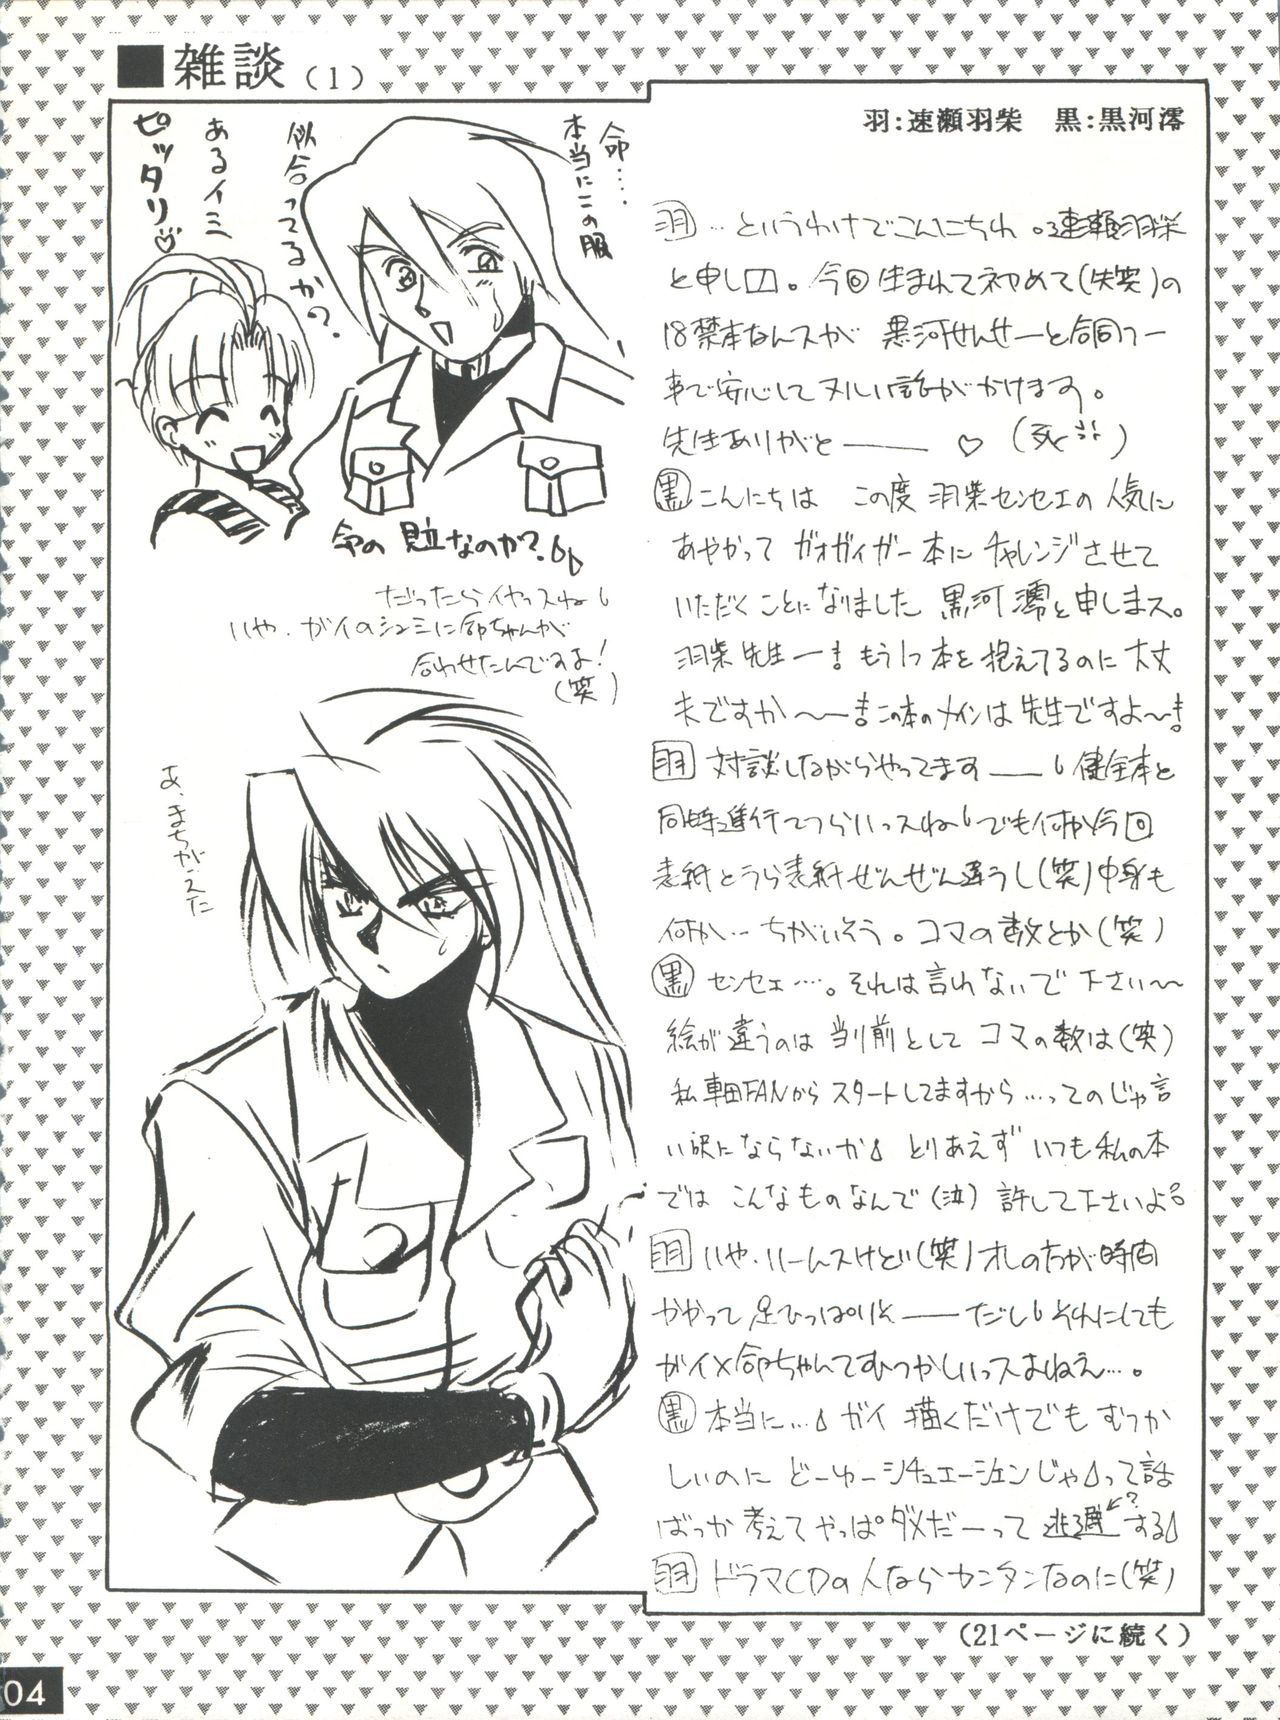 ■雑談(1)
羽:速瀬羽柴 黒:黒河澪
命……
本当にこの服
似合ってるか?
あるイミ
ピッタリ♡
命の見立なのか?
だったらイヤっスね
いや、ガイのシュミに命ちゃんが
合わせたんですよ!
(笑)
あ、まちがえた
羽 …というわけでこんにちわ。速瀬羽柴
と申し□。今回生まれて初めて(失笑)の
18禁本なんスが 黒河せんせーと合同ワー
事で安心してヌルい話がかけます。
先生ありがと―― ♡ (死)
黒 こんにちは この度 羽柴センセエの人気に
あやかって ガオガイガー本に チャレンジさせて
いただくことになりました 黒河澪と申しまス。
羽柴先生ー! もう1つ本を抱えてるのに大丈
夫ですか〜ー! この本のメインは先生ですよ〜!
羽 対談しながらやってます―― 健全本と
同時進行でつらいっスね でも何か今回
表紙とうら表紙ぜんぜん違うし(笑)中身も
何か…ちがいそう。コマの数とか(笑)
黒 センセェ…。それは言わないで下さい〜
絵が違うのは当り前として コマの数は(笑)
私車田FANからスタートしてますから…ってのじゃ言
い訳にならないか とりあえず いつも私の本
では こんなものなんで(泣) 許して下さいよ
羽 いや、いーんスけど(笑)オレの方が時間
かかって足ひっぱりそ――だし それにしても
ガイ×命ちゃんてむつかしいっスよねえ…。
黒 本当に… ガイ 描くだけでも むつか
しいのに どーゆーシチュエーションじゃって話
ばっか考えてやっぱダメだーって 逃避?する
羽 ドラマCDの人ならカンタンなのに(笑)
(21ページに続く)
04